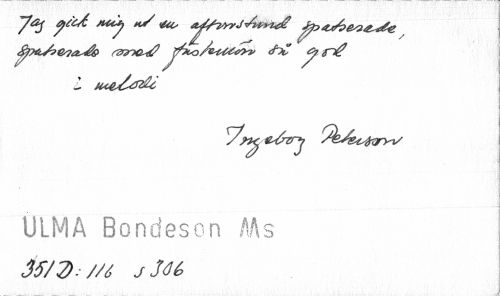 Jag gick mig ut en aftonstund spatserade,
spatserade med fästemön så god
i melodi
Ingeborg Peterson
ULMA Bondeson Ms
351 D: 116 s 306